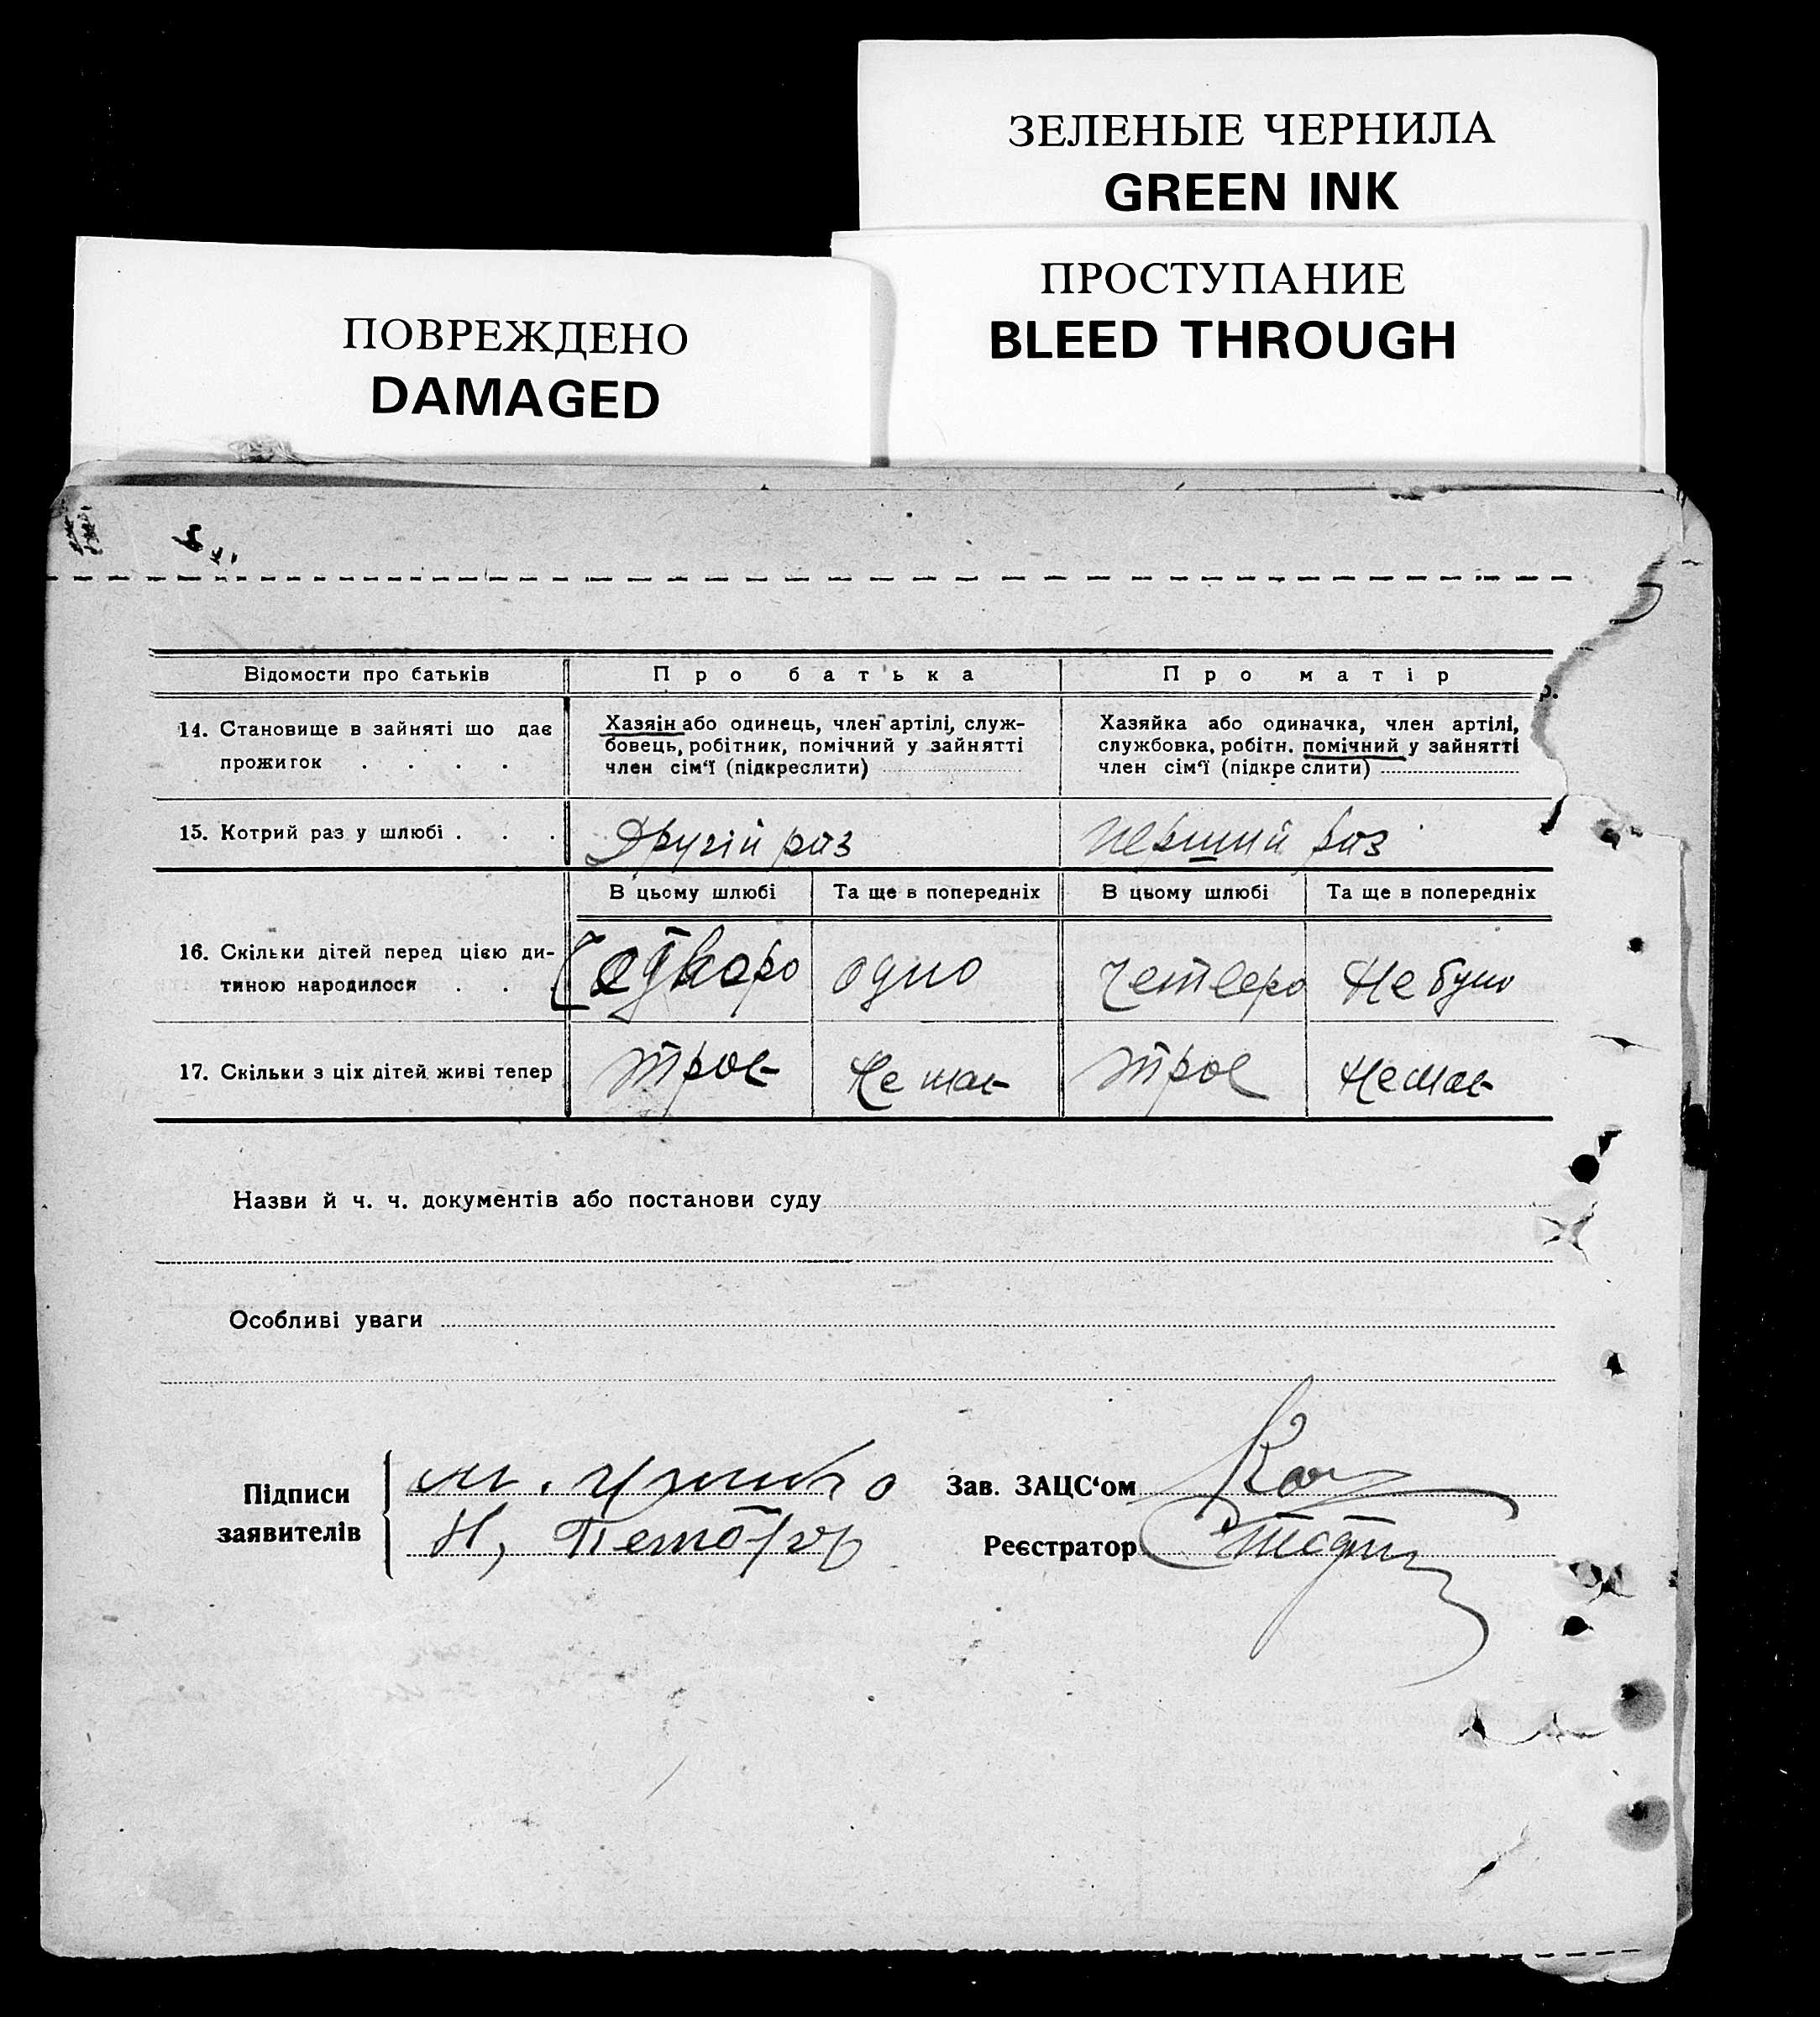 ЗЕЛЕНЫЕ ЧЕРНИЛА
GREEN INK
ПРОСТУПАНИЕ
BLEED THROUGH
ПОВРЕЖДЕНО
DAMAGED
Відомости про батьків
Про батька
Про матір
14. Становище в зайняті що дає
прожиток . . . .
Хазяін або одинець, член артілі, служ-
бовець, робітник, помічний у зайнятті
член сім'ї (підкреслити)
Хазяйка або одиначка, член артілі,
службовка, робітн. помічний у зайнятті
член сім'ї (підкреслити)
15. Котрий раз у шлюбі . . .
Другій раз
Перший раз
В цьому шлюбі
Та ще в попередніх
В цьому шлюбі
Та ще в попередніх
16. Скільки дітей перед цією ди-
тиною народилося . . .
одно
Четверо
Не було
17. Скільки з ціх дітей живі тепер
Троє
Не має
Троє
Не має
Назви й ч. ч. документів або постанови суду
Особливі уваги
Підписи
заявителів
М.
Н,
Зав. ЗАЦС'ом
Реєстратор